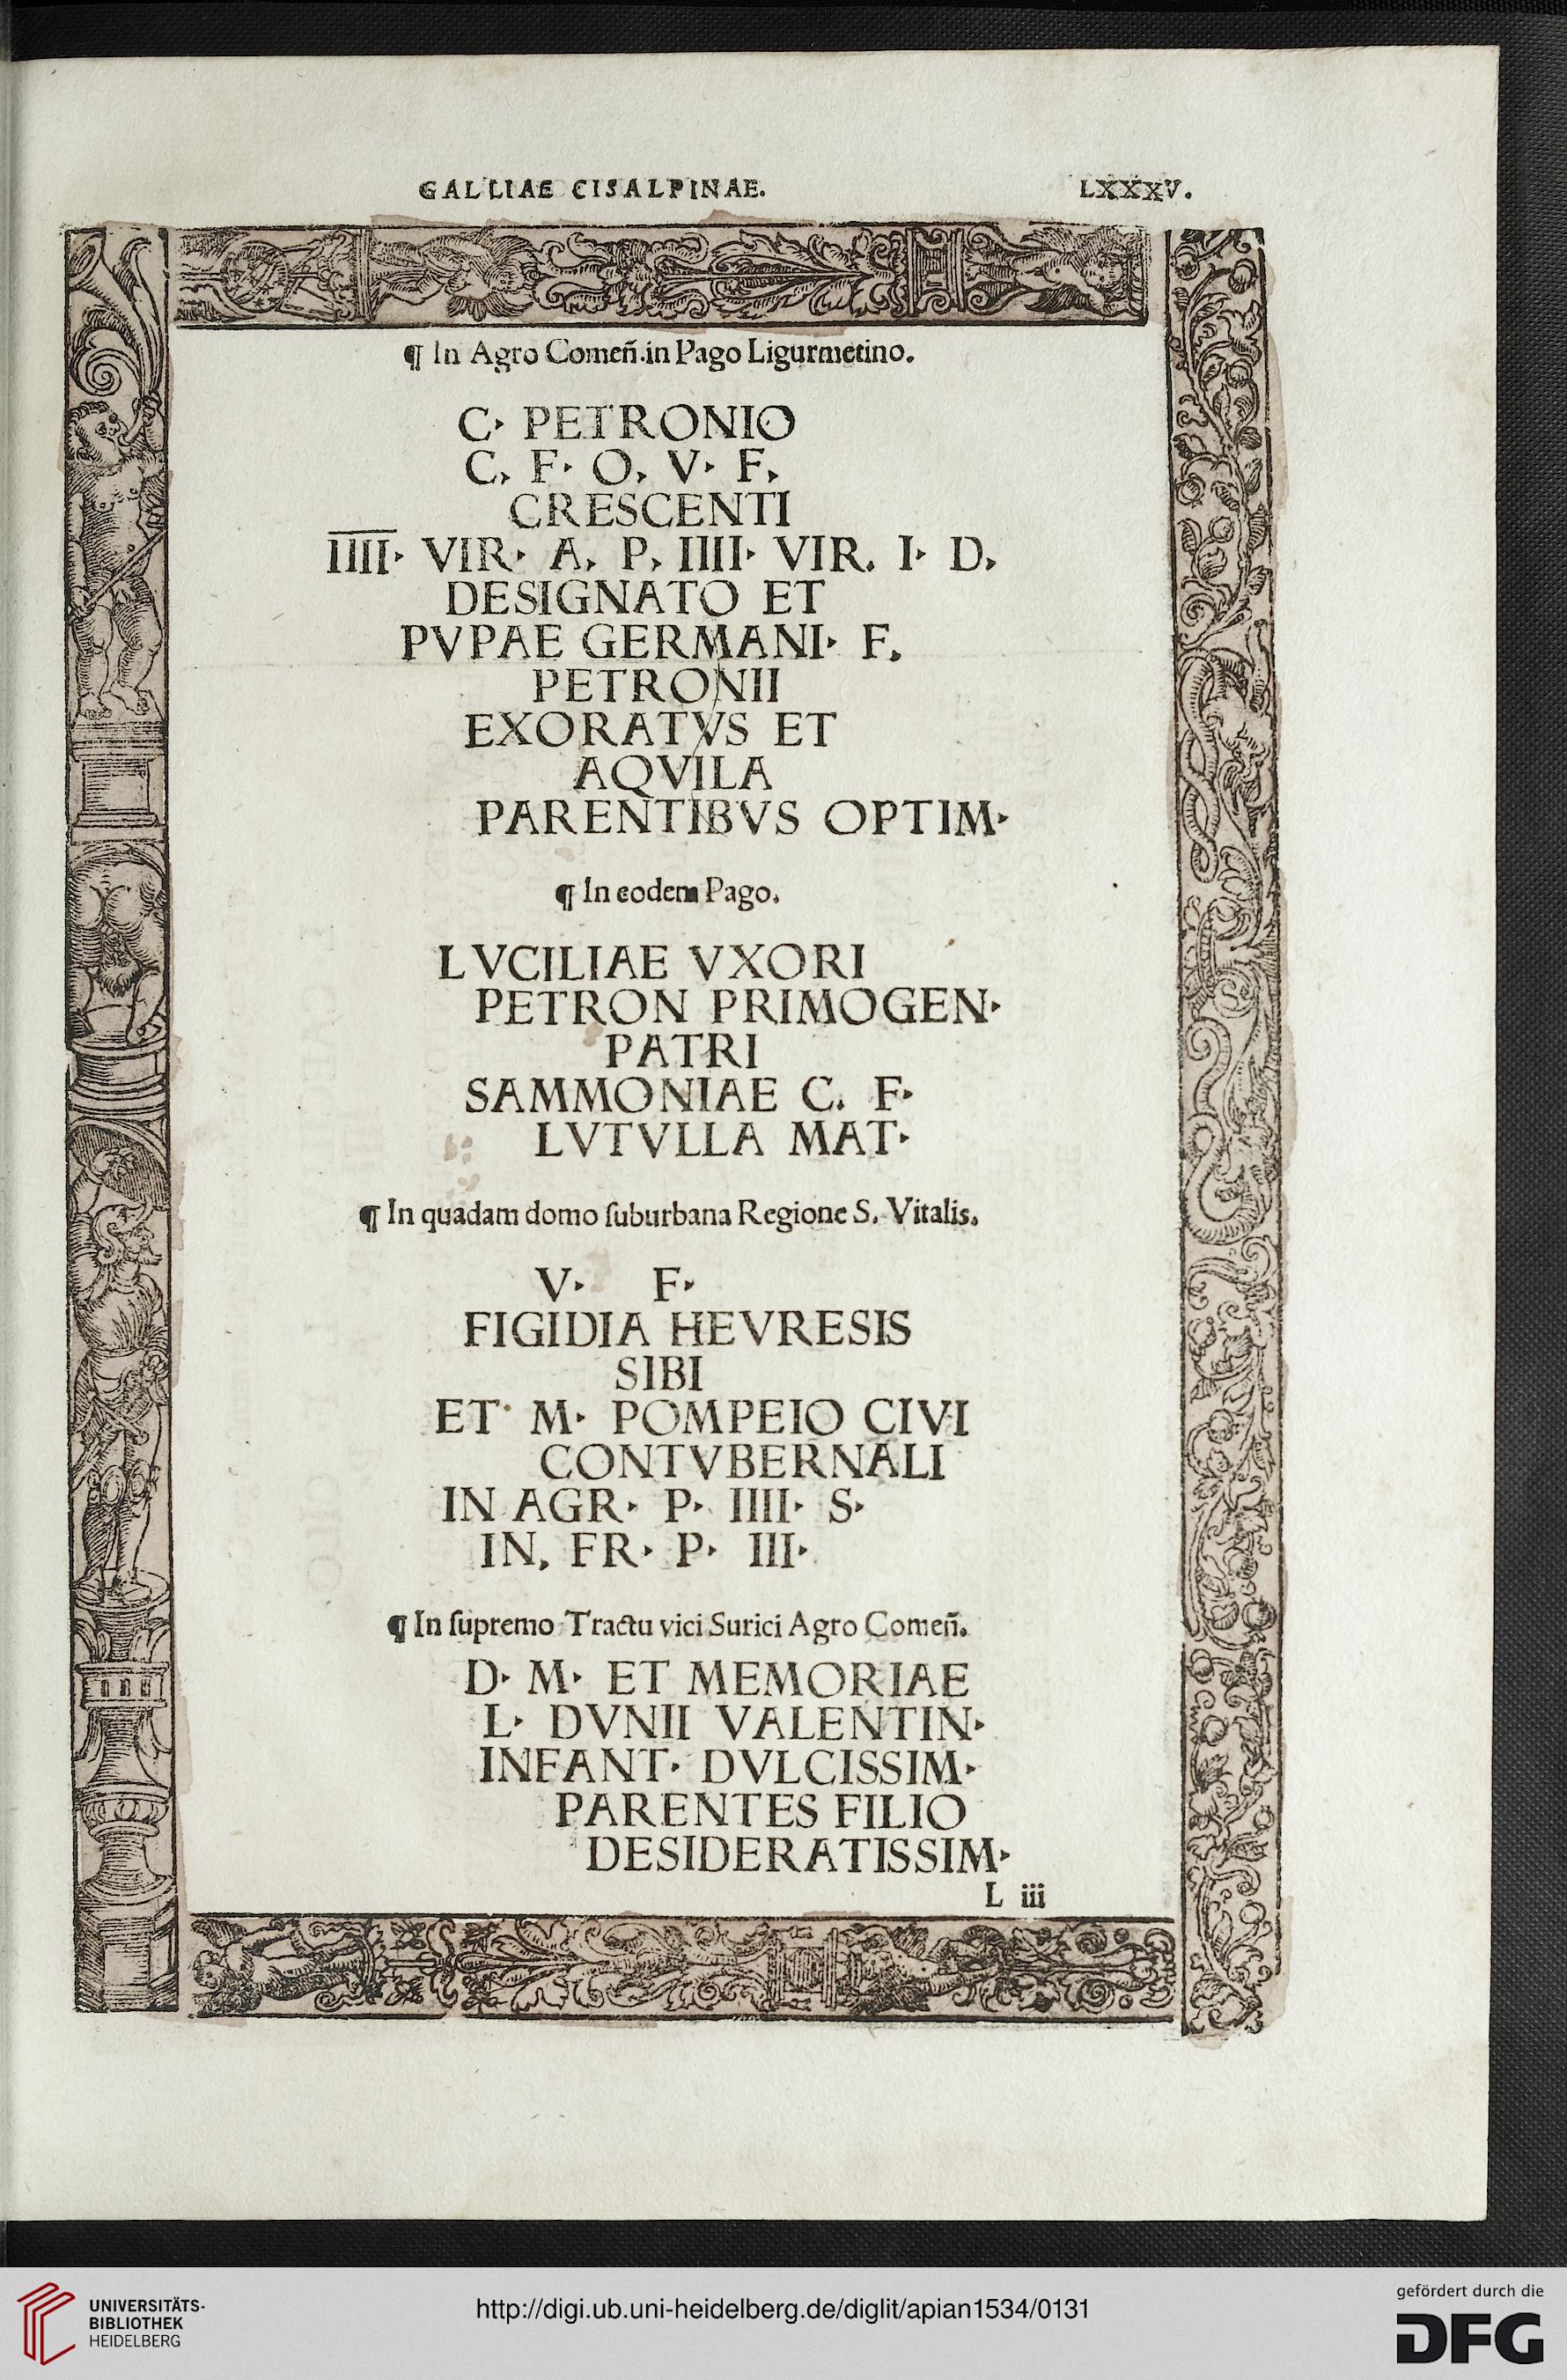 GALLIAE CISALPINAE. LXXXV.
¶ In Agro Comeñ.in Pago Ligurnietino.
C· PETRONIO
C, F· O, V· F,
CRESCENTI
I̅I̅I̅I̅· VIR· A, P, IIII· VIR. I· D,
DESIGNATO ET
PVPAE GERMANI· F.
PETRONII
EXORATVS ET
AQVILA
PARENTIBVS OPTIM·
¶ In eodem Pago.
LVCILIAE VXORI
PETRON PRIMOGEN·
PATRI
SAMMONIAE C. F·
LVTVLLA MAT·
¶ In quadam domo ſuburbana Regione S. Vitalis.
V· F·
FIGIDIA HEVRESIS
SIBI
ET· M· POMPEIO CIVI
CONTVBERNALI
IN AGR· P· IIII· S·
IN, FR· P· III·
¶ In ſupremo Tractu vici Surici Agro Comeñ.
D· M· ET MEMORIAE
L· DVNII VALENTIN·
INFANT· DVLCISSIM·
PARENTES FILIO
DESIDERATISSIM·
L iii
UNIVERSITÄTS-
BIBLIOTHEK
HEIDELBERG
http://digi.ub.uni-heidelberg.de/diglit/apian1534/0131
gefördert durch die
DFG